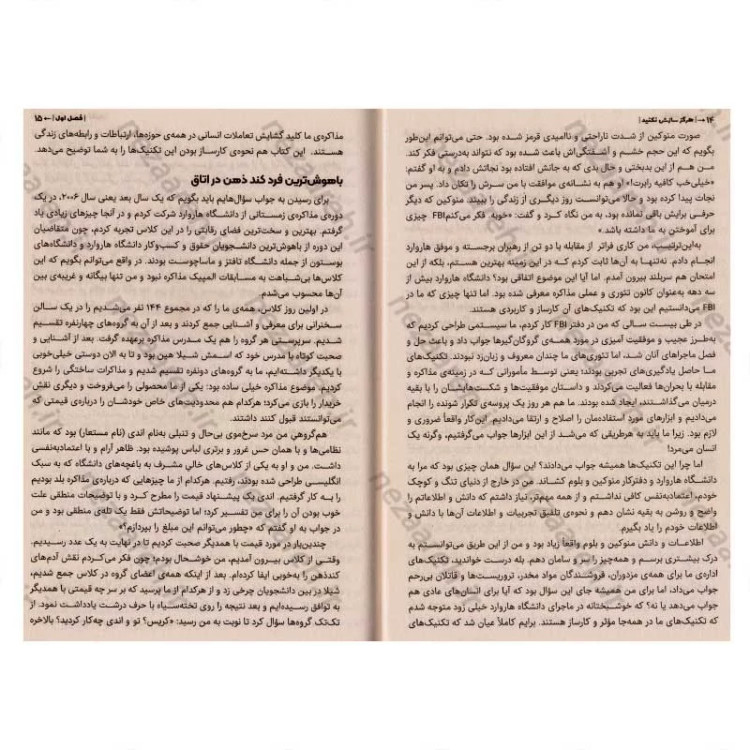 ۱۴ → | هرگز سازش نکنید |
صورت منوکین از شدت ناراحتی و ناامیدی قرمز شده بود. حتی می‌توانم این‌طور
بگویم که این حجم خشم و آشفتگی‌اش باعث شده بود که نتواند به‌درستی فکر کند.
من هم از این بدبختی و حال بدی که به جانش افتاده بود نجاتش دادم و به او گفتم:
«خیلی‌خب کافیه رابرت!» او هم به نشانه‌ی موافقت با من سرش را تکان داد. پسر من
نجات پیدا کرده بود و حالا می‌توانست روز دیگری از زندگی را ببیند. منوکین که دیگر
حرفی برایش باقی نمانده بود، به من نگاه کرد و گفت: «خوبه. فکر می‌کنم FBI چیزی
برای آموختن به ما داشته باشد.»
به‌این‌ترتیب، من کاری فراتر از مقابله با دو تن از رهبران برجسته و موفق هاروارد
انجام دادم. نه‌تنها به آن‌ها ثابت کردم که در این زمینه بهترین هستم، بلکه از این
امتحان هم سربلند بیرون آمدم. اما آیا این موضوع اتفاقی بود؟ دانشگاه هاروارد بیش از
سه دهه به‌عنوان کانون تئوری و عملی مذاکره معرفی شده بود. اما تنها چیزی که ما در
FBI می‌دانستیم این بود که تکنیک‌های آن کارساز و کاربردی هستند.
در طی بیست سالی که من در دفتر FBI کار کردم، ما سیستمی طراحی کردیم که
به‌طرز عجیب و موفقیت آمیزی در مورد همه‌ی گروگان‌گیرها جواب داد و باعث حل و
فصل ماجراهای آنان شد. اما تئوری‌های ما چندان معروف و زبان‌زد نبودند. تکنیک‌های
ما حاصل یادگیری‌های تجربی بودند؛ یعنی توسط مأمورانی که در زمینه‌ی مذاکره و
مقابله با بحران‌ها فعالیت می‌کردند و داستان موفقیت‌ها و شکست‌هایشان را با بقیه
درمیان می‌گذاشتند، ایجاد شده بودند. ما هم هر روز یک پروسه‌ی تکرار شونده را انجام
می‌دادیم و ابزارهای مورد استفاده‌مان را اصلاح و ارتقا می‌دادیم. این‌کار واقعاً ضروری و
لازم بود. زیرا ما باید به هرطریقی که می‌شد از این ابزارها جواب می‌گرفتیم، وگرنه یک
انسان می‌مرد!
اما چرا این تکنیک‌ها همیشه جواب می‌دادند؟ این سؤال همان چیزی بود که مرا به
دانشگاه هاروارد و دفترکار منوکین و بلوم کشاند. من در خارج از دنیای تنگ و کوچک
خودم، اعتمادبه‌نفس کافی نداشتم و از همه مهم‌تر، نیاز داشتم که دانش و اطلاعاتم را
واضح و روشن به بقیه نشان دهم و نحوه‌ی تلفیق تجربیات و اطلاعات آن‌ها با دانش و
اطلاعات خودم را یاد بگیرم.
اطلاعات و دانش منوکین و بلوم واقعاً زیاد بود و من از این طریق می‌توانستم به
درک بیشتری برسم و همه‌چیز را سر و سامان دهم. بله درست خواندید، تکنیک‌های
اداره‌ی ما برای همه‌ی مزدوران، فروشندگان مواد مخدر، تروریست‌ها و قاتلان بی‌رحم
جواب می‌داد، اما برای من همیشه جای این سؤال بود که آیا برای انسان‌های عادی هم
جواب می‌دهد یا نه؟ که خوشبختانه در ماجرای دانشگاه هاروارد خیلی زود متوجه شدم
که تکنیک‌های ما در همه‌جا مؤثر و کارساز هستند. برایم کاملاً عیان شد که تکنیک‌های
| فصل اول | ← ۱۵
مذاکره‌ی ما کلید گشایش تعاملات انسانی در همه‌ی حوزه‌ها، ارتباطات و رابطه‌های زندگی
هستند. این کتاب هم نحوه‌ی کارساز بودن این تکنیک‌ها را به شما توضیح می‌دهد.
باهوش‌ترین فرد کند ذهن در اتاق
برای رسیدن به جواب سؤال‌هایم باید بگویم که یک سال بعد یعنی سال ۲۰۰۶، در یک
دوره‌ی مذاکره‌ی زمستانی از دانشگاه هاروارد شرکت کردم و در آنجا چیزهای زیادی یاد
گرفتم. بهترین و سخت‌ترین فضای رقابتی را در این کلاس تجربه کردم، چون متقاضیان
این دوره از باهوش‌ترین دانشجویان حقوق و کسب‌وکار دانشگاه هاروارد و دانشگاه‌های
بوستون از جمله دانشگاه تافتز و ماساچوست بودند. در واقع می‌توانم بگویم که این
کلاس‌ها بی‌شباهت به مسابقات المپیک مذاکره نبود و من تنها بیگانه و غریبه‌ی بین
آن‌ها محسوب می‌شدم.
در اولین روز کلاس، همه‌ی ما را که در مجموع ۱۴۴ نفر می‌شدیم را در یک سالن
سخنرانی برای معرفی و آشنایی جمع کردند و بعد از آن به گروه‌های چهارنفره تقسیم
شدیم. سرپرستی هر گروه را هم یک مدرس مذاکره برعهده گرفت. بعد از آشنایی و
صحبت کوتاه با مدرس خود که اسمش شیلا هین بود و تا به الان دوستی خیلی‌خوبی
با یکدیگر داشته‌ایم، ما به گروه‌های دونفره تقسیم شدیم و مذاکرات ساختگی را شروع
کردیم. موضوع مذاکره خیلی ساده بود: یکی از ما محصولی را می‌فروخت و دیگری نقش
خریدار را بازی می‌کرد؛ هرکدام هم محدودیت‌های خاص خودشان را درباره‌ی قیمتی که
می‌توانستند قبول کنند داشتند.
هم‌گروهی من مرد سرخ‌موی بی‌حال و تنبلی به‌نام اندی (نام مستعار) بود که مانند
نظامی‌ها و با همان حس غرور و برتری لباس پوشیده بود. ظاهر آرام و با اعتمادبه‌نفسی
داشت. من و او به یکی از کلاس‌های خالی مشرف به باغچه‌های دانشگاه که به سبک
انگلیسی طراحی شده بودند، رفتیم. هرکدام از ما چیزهایی که درباره‌ی مذاکره بلد بودیم
را به کار گرفتیم. اندی یک پیشنهاد قیمت را مطرح کرد و با توضیحات منطقی علت
خوب بودن آن را برای من تفسیر کرد؛ اما توضیحاتش فقط یک تله‌ی منطقی بود و من
در جواب به او گفتم که «چطور می‌توانم این مبلغ را بپردازم؟»
چندین‌بار در مورد قیمت با همدیگر صحبت کردیم تا در نهایت به یک عدد رسیدیم.
وقتی از کلاس بیرون آمدیم، من خوشحال بودم؛ چون فکر می‌کردم نقش آدم‌های
کندذهن را به‌خوبی ایفا کرده‌ام. بعد از اینکه همه‌ی اعضای گروه در کلاس جمع شدیم،
شیلا در بین دانشجویان چرخی زد و از هرکدام از ما پرسید که بر سر چه قیمتی با همدیگر
به توافق رسیده‌ایم و بعد نتیجه را روی تخته‌سیاه با حرف درشت یادداشت نمود. از
تک‌تک گروه‌ها سؤال کرد تا نوبت به من رسید: «کریس؟ تو و اندی چه‌کار کردید؟ بالاخره